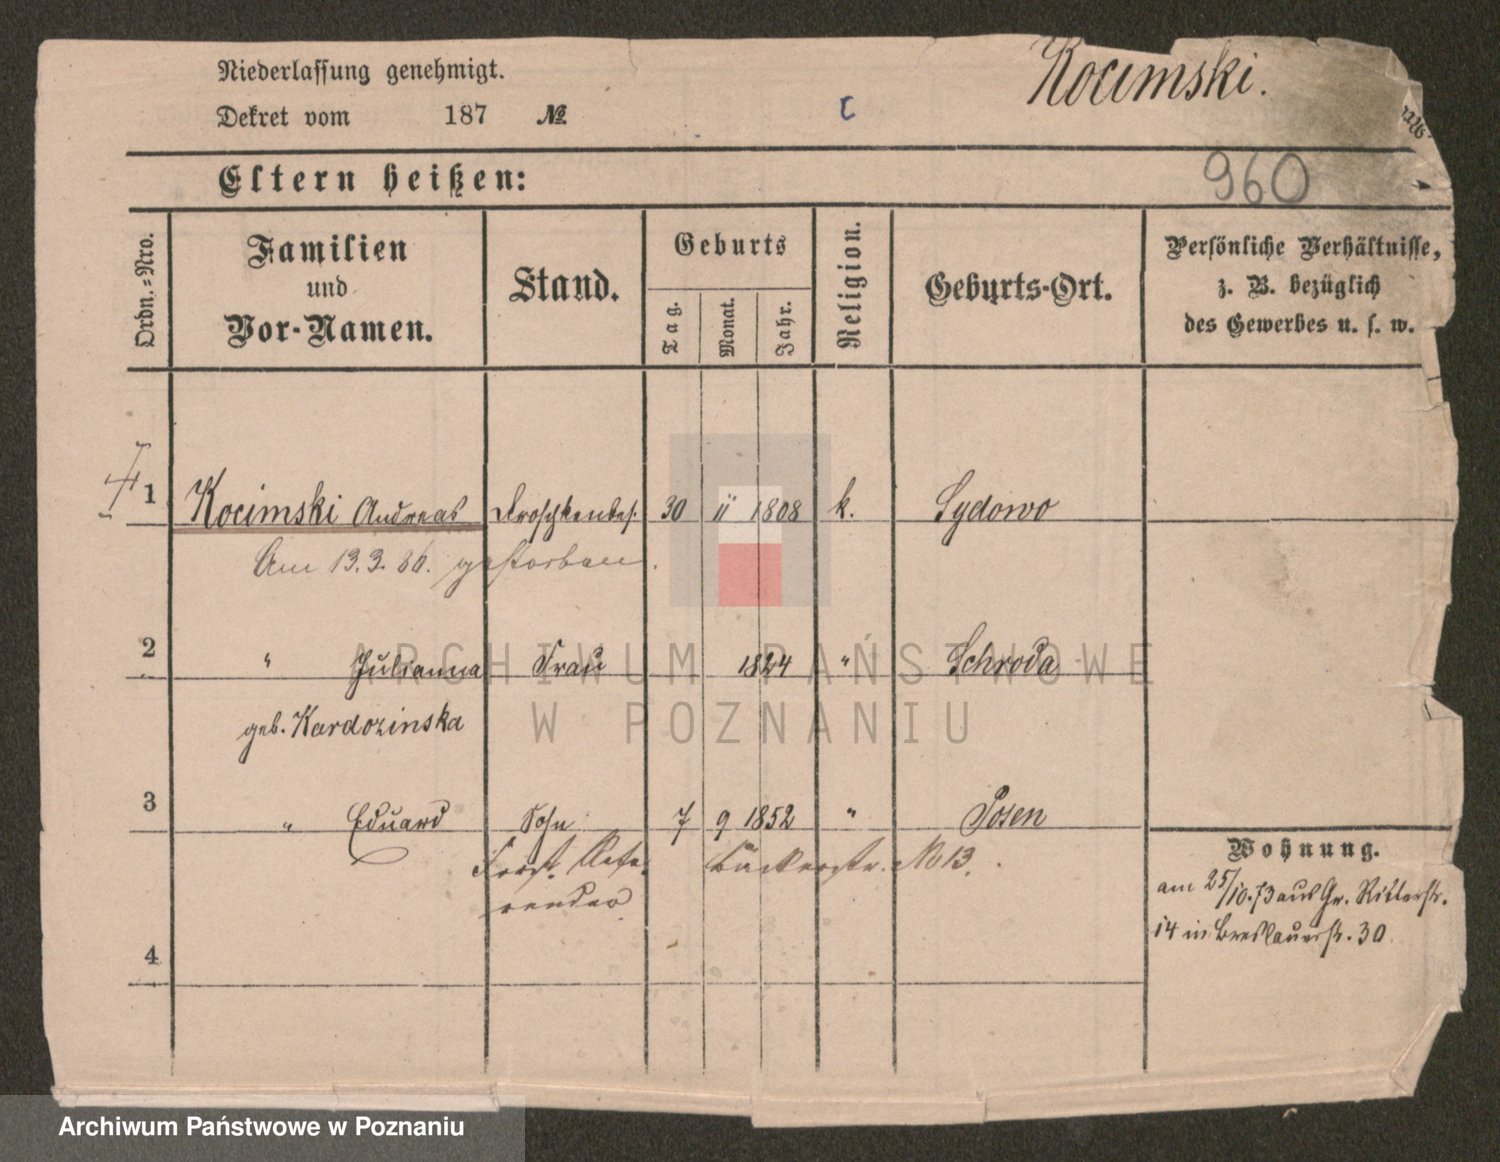 Niederlassung genehmigt.
Kocimski.
Dekret vom 187 №
Eltern heißen:
960
Ordn.-Nro.
Familien
und
Vor-Namen.
Stand.
Geburts
Tag.
Monat.
Jahr.
Religion.
Geburts-Ort.
Persönliche Verhältnisse,
z. B. bezüglich
des Gewerbes u. s. w.
1 Kocimski Andreas Droschkenbes. 30 11 1808 k. Sydowo
Am 13.3.86. gestorben.
2 " Julianna Frau 1824 " Schroda
geb. Kardozinska
3 " Eduard Sohn 7 9 1852 " Posen
Forst. Refe- Bäckerstr. No 13.
rendar
Wohnung.
am 25/10.73 aus Gr. Ritterstr.
14 in Breslauerstr. 30
4
ARCHIWUM PAŃSTWOWE
W POZNANIU
Archiwum Państwowe w Poznaniu